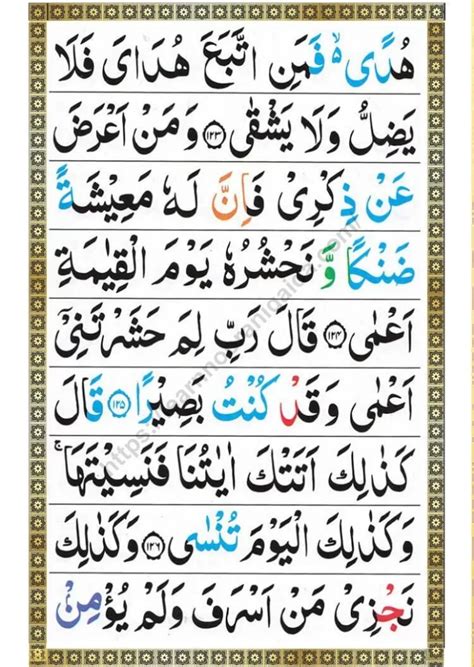 هُدًى ۙ فَمَنِ اتَّبَعَ هُدَايَ فَلَا
يَضِلُّ وَلَا يَشْقٰى ﴿۱۲۳﴾ وَ مَنْ اَعْرَضَ
عَنْ ذِكْرِيْ فَاِنَّ لَهٗ مَعِيْشَةً
ضَنْكًا وَّ نَحْشُرُهٗ يَوْمَ الْقِيٰمَةِ
اَعْمٰى ﴿۱۲۴﴾ قَالَ رَبِّ لِمَ حَشَرْتَنِيْۤ
اَعْمٰى وَ قَدْ كُنْتُ بَصِيْرًا ﴿۱۲۵﴾ قَالَ
كَذٰلِكَ اَتَتْكَ اٰيٰتُنَا فَنَسِيْتَهَا ۚ
وَ كَذٰلِكَ الْيَوْمَ تُنْسٰى ﴿۱۲۶﴾ وَ كَذٰلِكَ
نَجْزِيْ مَنْ اَسْرَفَ وَ لَمْ يُؤْمِنْۢ